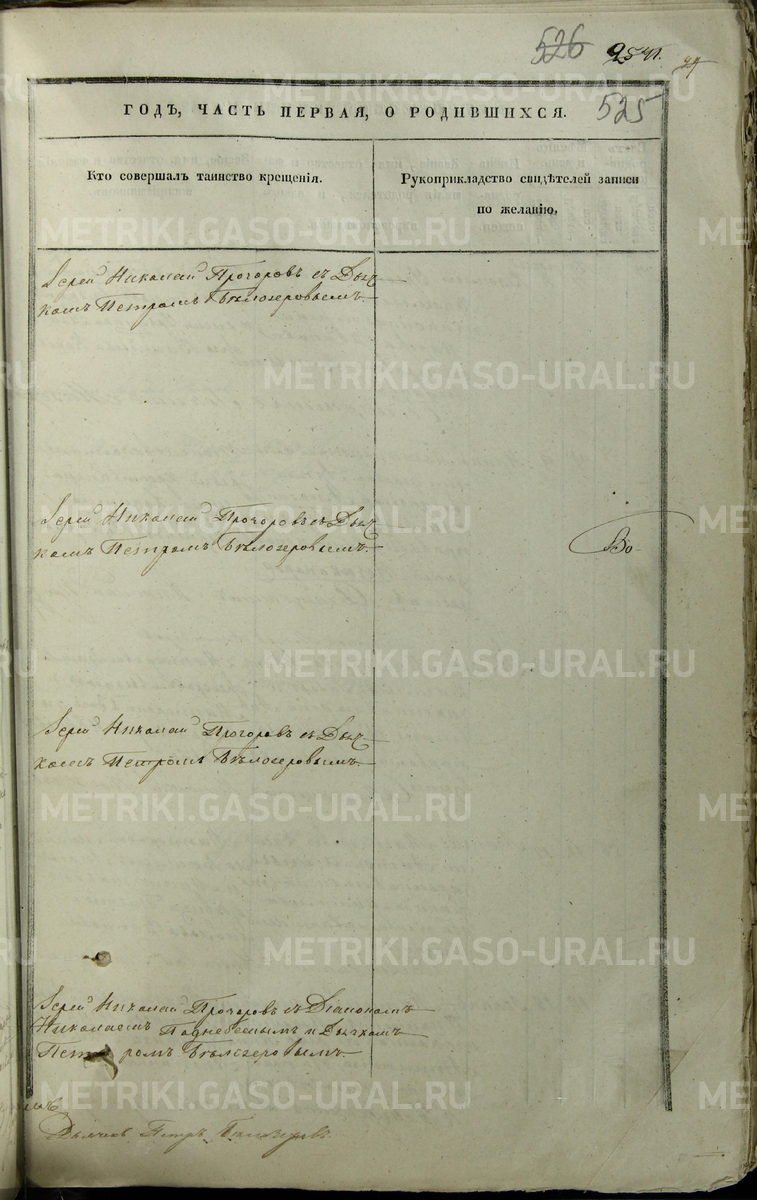 526 254
525
ГОДЪ, ЧАСТЬ ПЕРВАЯ, О РОДИВШИХСЯ.
Кто совершалъ таинство крещенія.
Рукоприкладство свидѣтелей записи
по желанію,
Іерей Николай Прочоровъ съ Дьяч-
комъ Петромъ Бѣлозеровымъ.
Іерей Николай Прочоровъ съ Дьяч-
комъ Петромъ Бѣлозеровымъ.
Во-
Іерей Николай Прочоровъ съ Дьяч-
комъ Петромъ Бѣлозеровымъ.
Іерей Николай Прочоровъ съ Діакономъ
Николаемъ Поднебеснымъ и Дьячкомъ
Петромъ Бѣлозеровымъ.
Дьячек Петръ Белозеровъ
METRIKI.GASO-URAL.RU